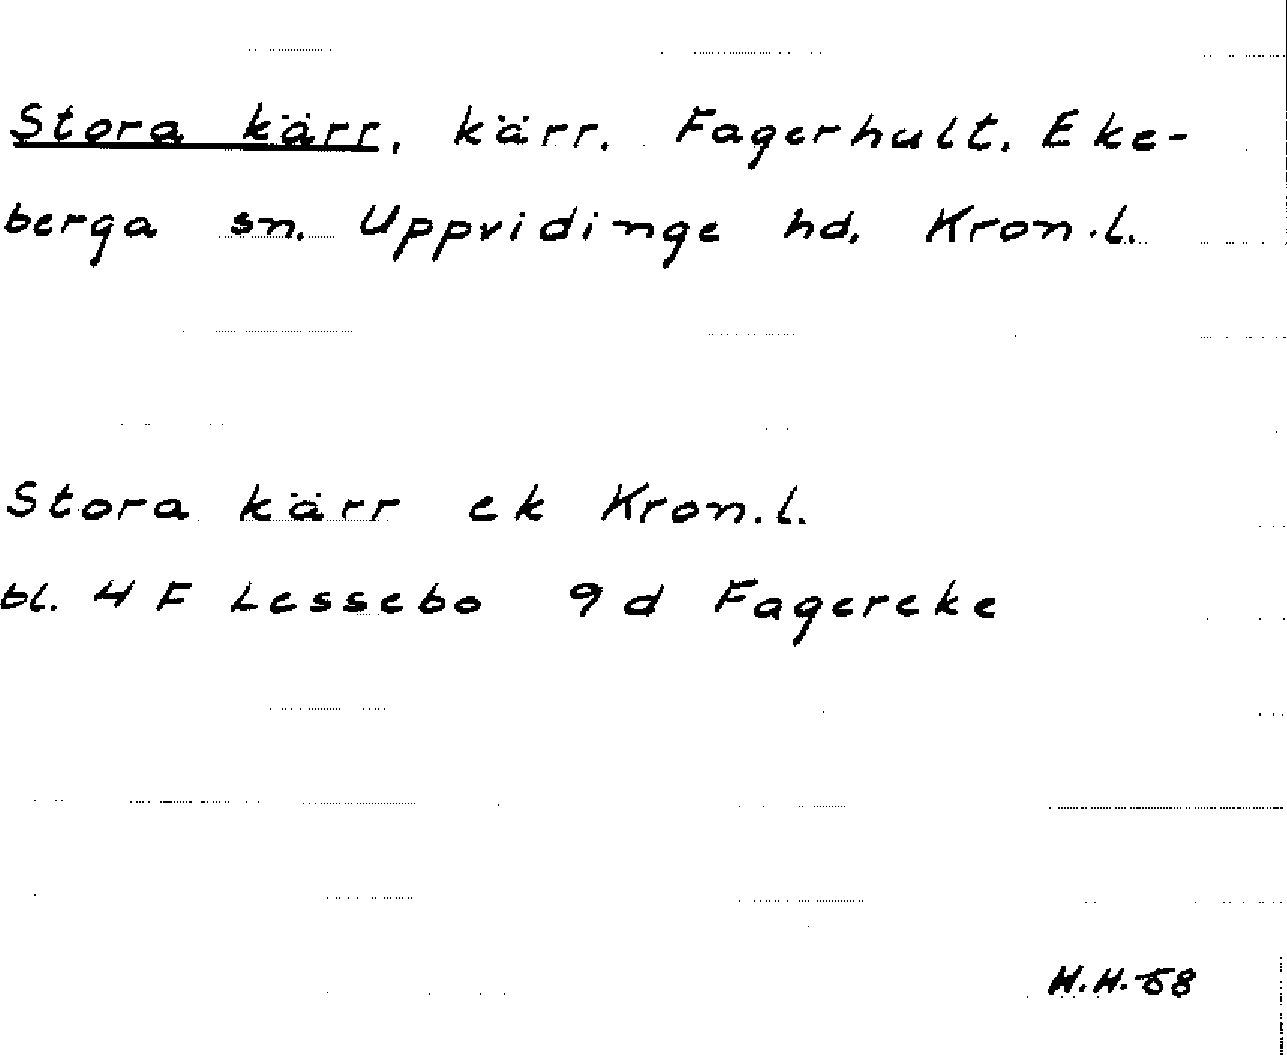 Stora kärr, kärr. Fagerhult. Eke-
berga sn. Uppvidinge hd. Kron.l.
Stora kärr ek Kron.l.
bl. 4 F Lessebo 9 d Fagereke
H.H.-58